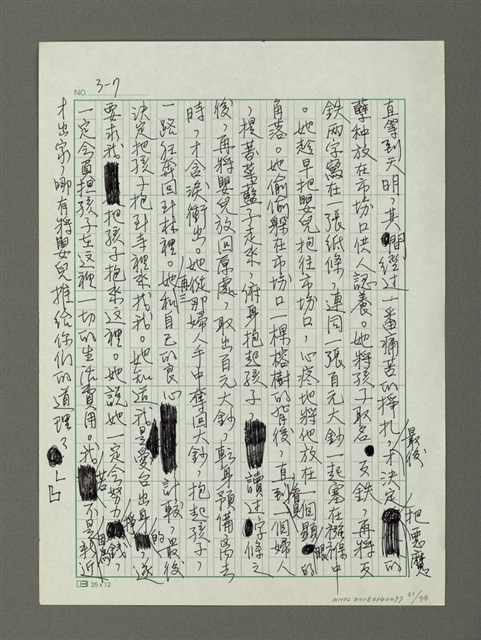 NO. 3-7
直等到天明，其間經过一番痛苦的掙扎，才決定最後把惡魔的
孽种放在市場口供人認養。她將孩子取名叉鉄，再將叉
鉄两字寫在一張紙條，連同一張百元大鈔一起塞在襁褓中
。她趁早把嬰兒抱往市場口，心疼地將他放在一個顯眼的
角落。她偷偷躲在市場口一棵榕樹的背後，直到看見一個婦人
，提著菜籃子走來，俯身抱起孩子，讀过字條之
後，再將嬰兒放回原處，取出百元大鈔，転身預備离去
時，才含淚衝出。她從那婦人手中奪回大鈔，抱起孩子，
一路狂奔回到林裡。她和自己的良心再三計較，最後
決定把孩子抱到寺裡來找我。她知道我是受台出身的，遂
要求我把孩子抱來这裡。她說她一定会努力錢，
一定会負担孩子在这裡一切的生活費用。我若不是我近
才出家，哪有將嬰兒推给你们的道理？」
25x12
NMTL20080140097 21/99